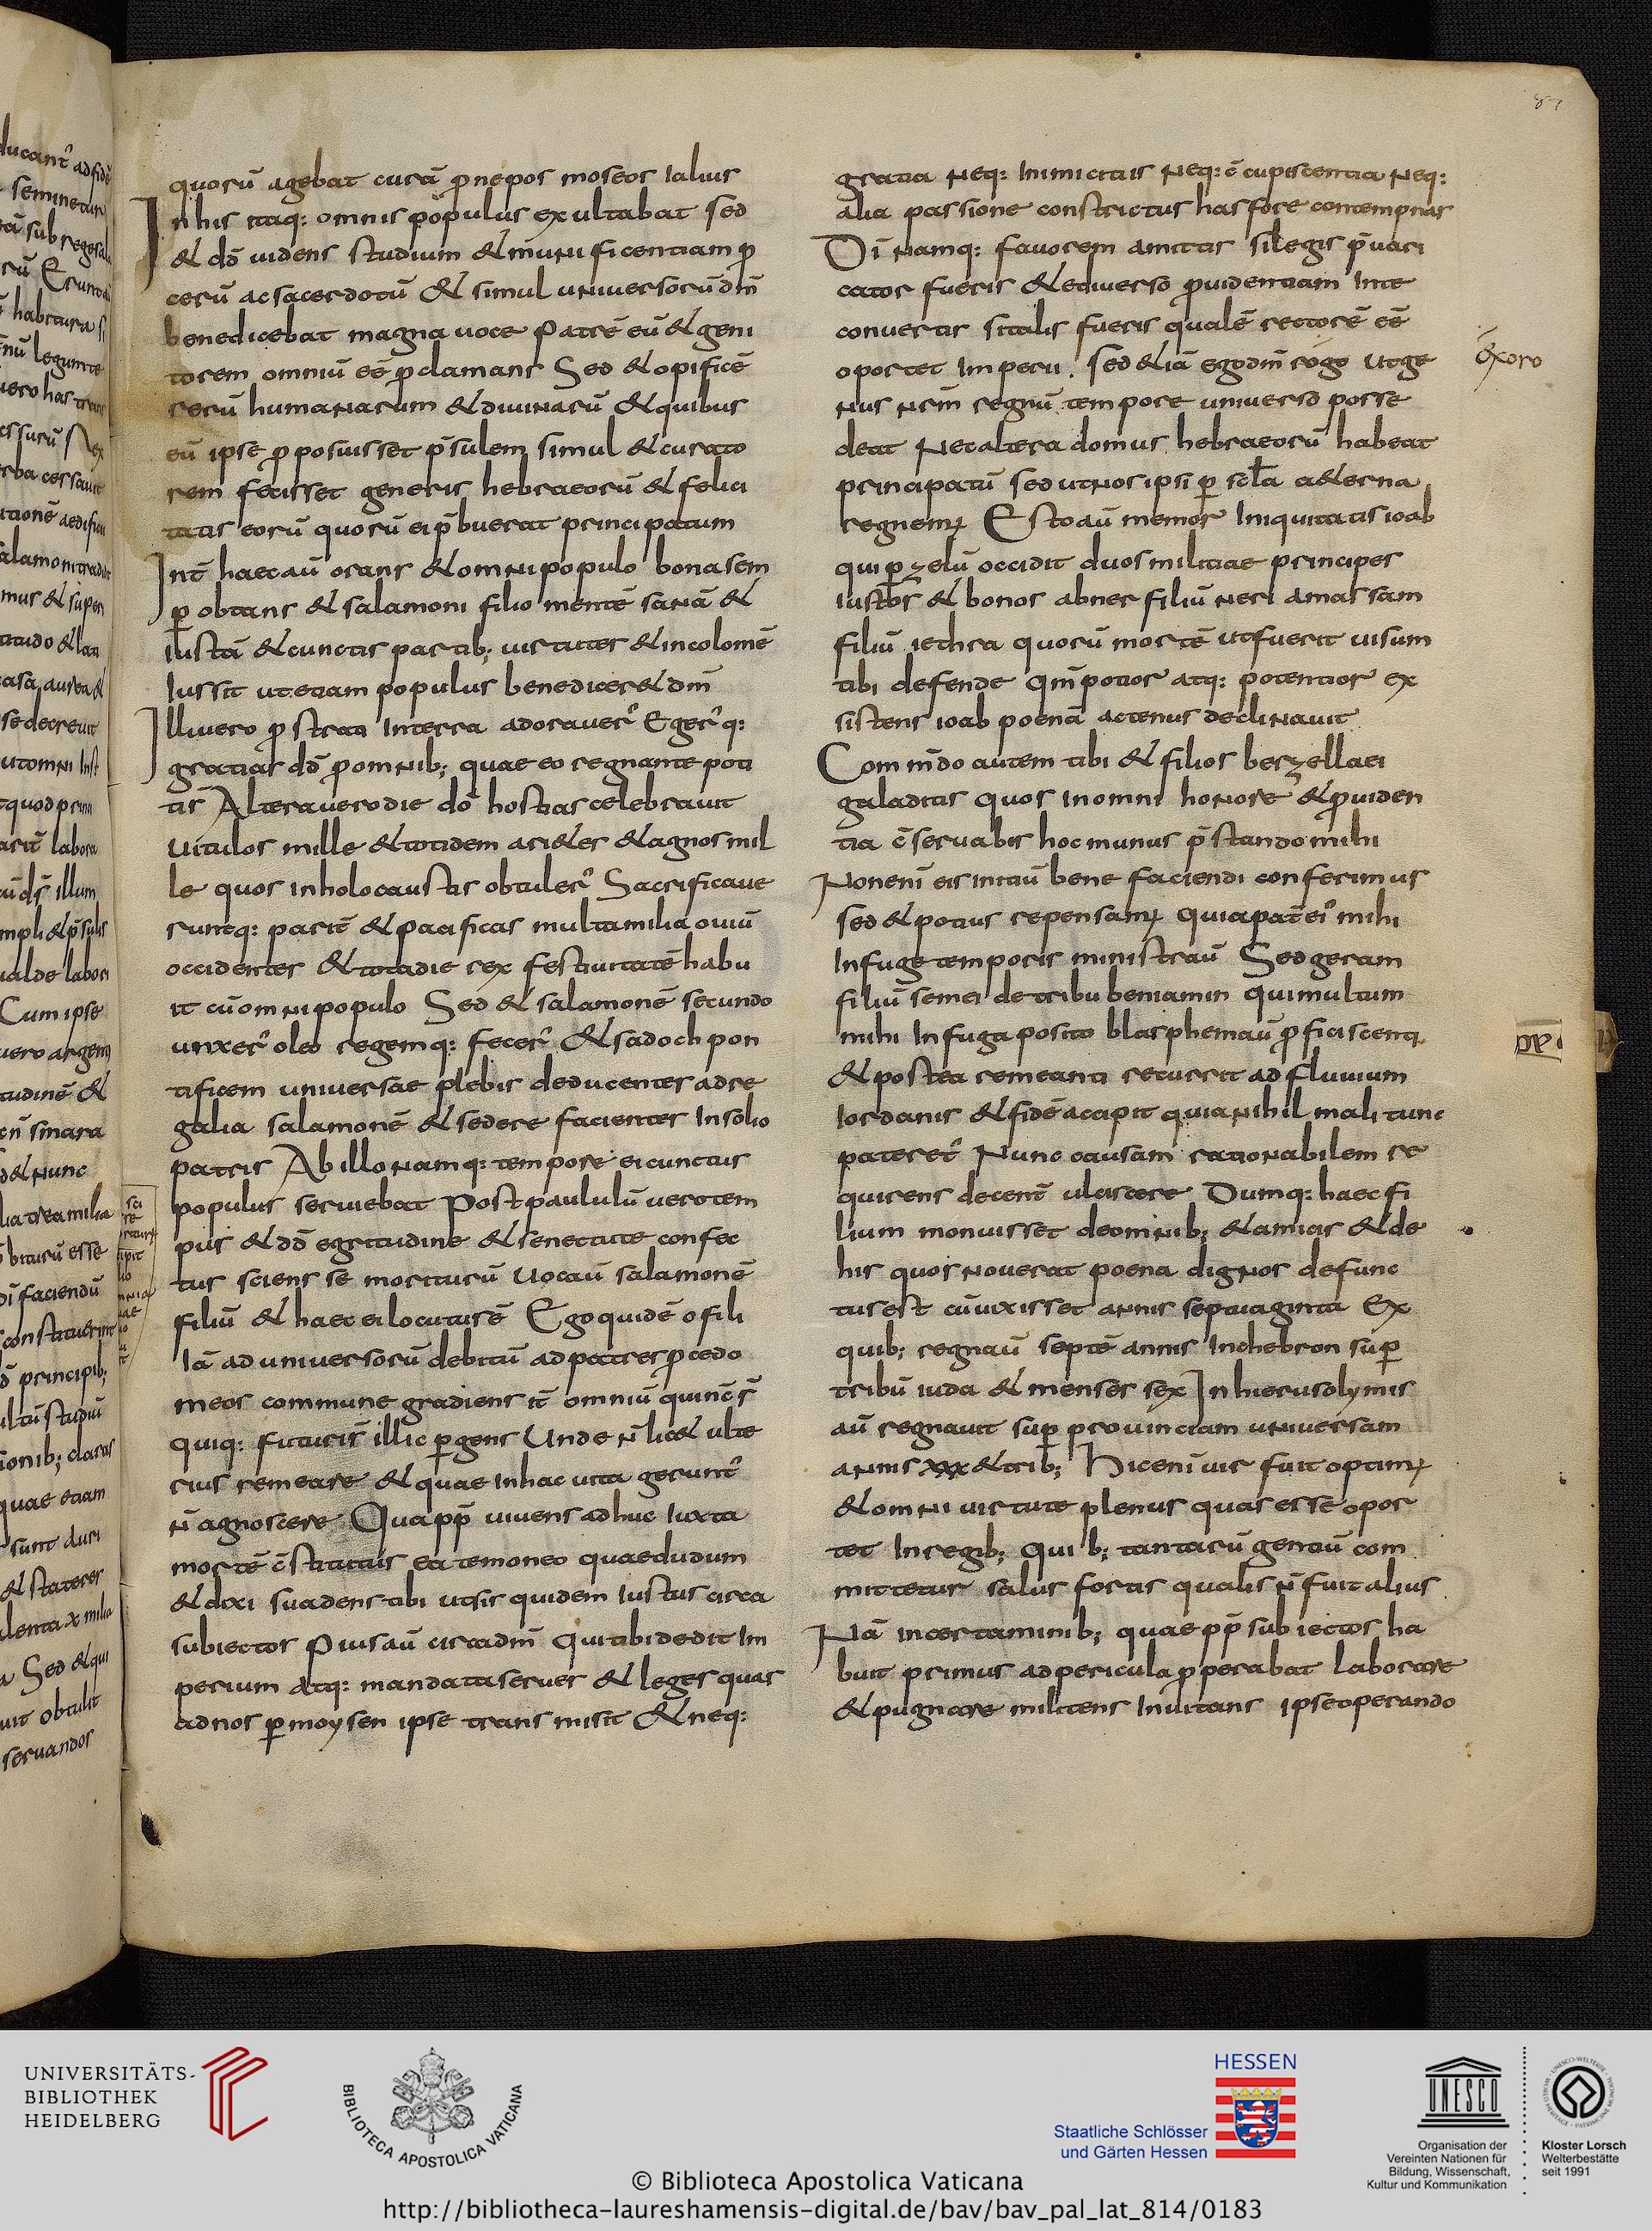 quorū agebat curā p̄nepos moseos Ialius
In his itaq: omnis populus exultabat sed
& dō uidens studium & munificentiam p̄
cerū ac sacerdotū & simul uniuersorū dn̄
benedicebat magna uoce Patrē eū & geni
torem omniū eē p̄clamans Sed & opificē
rerū humanarum & diuinarū & quibus
eū ipse p̄posuisset p̄sulem simul & curato
rem fecisset generis hebraeorū & felici
tatis eorū quorū ei p̄buerat principatum
Int̄ haec aū orans & omni populo bona sem
p̄ obtans & salamoni filio mentē sanā &
Iustā & cunctis partib; uirtutes & incolomē
Iussit ut etiam populus benediceret dn̄
Illi uero p̄strati In terra adorauer̄ Eger̄q:
gratias dō p̄ omnib; quae eo regnante poti
tis Altera uero die dō hostias celebrauit
Uitulos mille & totidem ari&es & agnos mil
le quos in holocaustis obtuler̄ Sacrificaue
runtq: parit̄ & pacificas multa milia ouiū
occidentes & tota die rex festiuitatē habu
it cū omni populo Sed & salamonē secundo
unxer̄ oleo regemq: fecer̄ & sadoch pon
tificem uniuersae plebis deducentes ad re
galia salamonē & sedere facientes In solio
patris Ab illo namq: tempore ei cunctus
populus seruiebat Post paululū uero tem
pus & dd̄ egritudine & senectute confec
tus sciens se moriturū Uocaū salamonē
filiū & haec ei locutus ē Ego quidē o fili
Iā ad uniuersorū debitū ad patres p̄cedo
meos commune gradiens it̄ omniū qui nc̄ s̄
quiq: futuri s̄ illic p̄gens Unde n̄ lic& ulte
rius remeare & quae In hac uita gerunt̄
n̄ agnoscere Qua pp̄ uiuens adhuc Iuxta
mortē c̄stitutus ea te moneo quae dudum
& dixi suadens tibi ut sis quidem Iustus circa
subiectos Pius aū circa dn̄ Qui tibi dedit Im
perium Atq: mandata serues & leges quas
ad nos p̄ moysen ipse transmisit & neq:
gratia Neq: Inimicitiis Neq: c̄cupiscentia Neq:
alia passione constrictus has fore contempnas
Dī Namq: fauorem amittis si legis p̄uari
cator fueris & e diuerso p̄uidentiam In te
conuertis si talis fueris qualē rectorē eē
oportet Imperii. Sed & iā ego dn̄ rogo ut ge
nus nr̄m regnū tempore uniuerso posse
deat Nec altera domus hebraeorū habeat
principatū sed ut nos ipsi p̄ scl̄a a&erna
regnem; Esto aū memor Iniquitatis ioab
qui p̄ zelū occidit duos militiae principes
Iustos & bonos abner filiū neri amassam
filiū iethra quorū mortē ut fuerit uisum
tibi defende Qm̄ potior atq: potentior ex
sistens ioab poenā actenus declinauit
Comm̄do autem tibi & filios berzellaei
galaditis quos in omni honore & p̄uiden
tia c̄seruabis hoc munus p̄stando mihi
Non enī eis initiū bene faciendi conferimus
sed & potius repensam; quia pat̄ ei' mihi
In fuge temporis ministraū Sed geram
filiū semei de tribu beniamin qui multum
mihi In fuga posito blasphemaū p̄ficiscenti
& postea remeanti recurrit ad fluuium
Iordanis & fidē accepit quia nihil mali tunc
pateret̄ Nunc causam rationabilem re
quirens decent̄ ulciscere Dumq: haec fi
lium monuisset de omnib; & amicis & de
his quos nouerat poena dignos defunc
tus est cū uixisset annis septuaginta Ex
quib; regnaū septē annis In chebron sup̄
tribū iuda & menses sex In hierusolymis
aū regnauit sup̄ prouinciam uniuersam
annis xxx & trib; Hic enī uir fuit optim;
& omni uirtute plenus quas esse opor
tet In regib; Quib; tantarū gentiū com
mittetur salus fortis qualis n̄ fuit alius
Nā in certaminib; quae pp̄ subiectos ha
buit primus ad pericula p̄perabat laborare
& pugnare milites Inuitans ipse operando
exoro
UNIVERSITÄTS-
BIBLIOTHEK
HEIDELBERG
BIBLIOTECA APOSTOLICA VATICANA
HESSEN
Staatliche Schlösser
und Gärten Hessen
UNESCO
Organisation der
Vereinten Nationen für
Bildung, Wissenschaft,
Kultur und Kommunikation
Kloster Lorsch
Welterbestätte
seit 1991
© Biblioteca Apostolica Vaticana
http://bibliotheca-laureshamensis-digital.de/bav/bav_pal_lat_814/0183